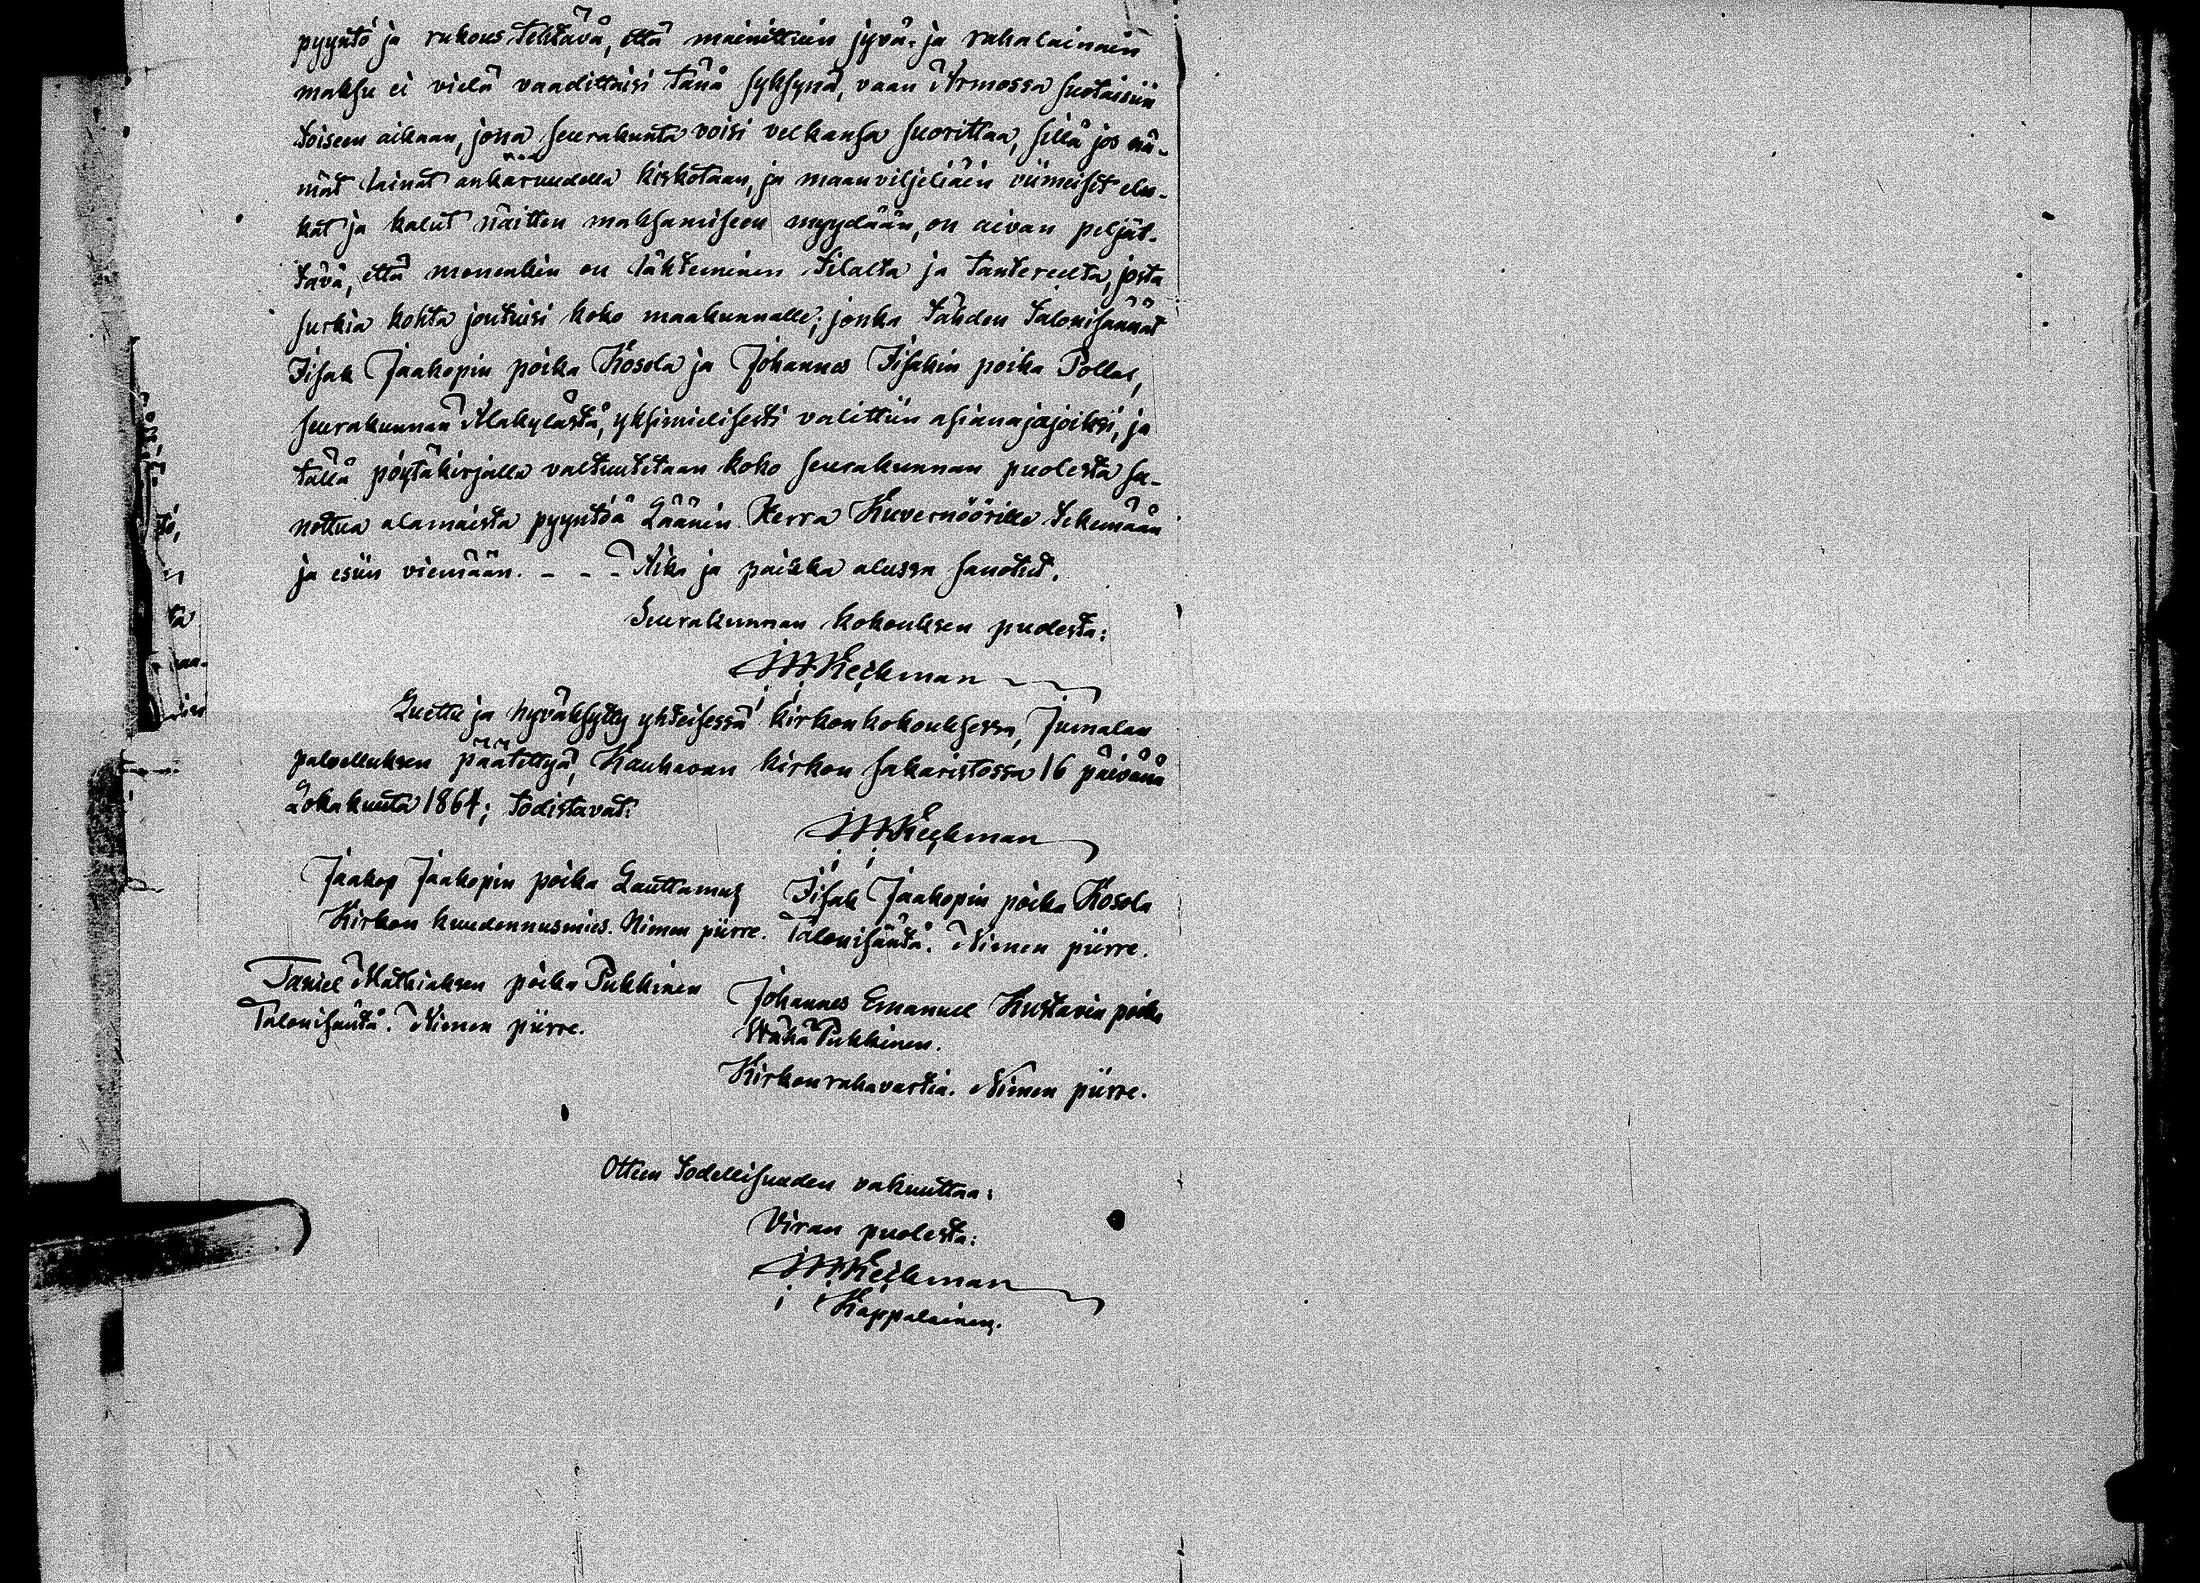 pyyntö ja rukous tehtävä, että mainittuin jyvä- ja rahalainain
maksu ei vielä vaadittaisi tänä syksynä, vaan Armossa suotaisiin
toiseen aikaan, jona seurakunta voisi velkansa suorittaa, sillä jos nä-
mät lainat ankaruudella kiskotaan, ja maanviljeliäin viimeiset elu-
kat ja kalut näitten maksamiseen myydään, on aivan peljät-
tävä, että monenkin on lähteminen tilalta ja tantereelta, josta
surkia kohta joutuisi koko maakunnalle; jonka tähden Talonisännät
Iisak Jaakopin poika Kosola ja Johannes Iisakin poika Pollas,
seurakunnan Alakylästä, yksimielisesti valittiin asianajajoiksi, ja
tällä pöytäkirjalla valtuutetaan koko seurakunnan puolesta sa-
nottua alamaista pyyntöä Läänin Herra Kuvernöörille tekemään
ja esiin viemään. - - - Aika ja paikka alussa sanotut.
Seurakunnan kokouksen puolesta:
Keckman
Luettu ja hyväksytty yhteisessä kirkonkokouksessa, Jumalan
palvelluksen päätettyä, Kauhavan kirkon sakaristossa 16 päivänä
Lokakuuta 1864; todistavat:
Keckman
Jaakop Jaakopin poika Lauttamus
Kirkon kuudennusmies. Nimen piirre.
Iisak Jaakopin poika Kosola
Talonisäntä. Nimen piirre.
Taniel Mathiaksen poika Pukkinen
Talonisäntä. Nimen piirre.
Johannes Emanuel Kustavin poika
Wähä Pukkinen.
Kirkonrahavartia. Nimen piirre.
Otteen todellisuuden vakuuttaa:
Viran puolesta:
Keckman
Kappalainen.